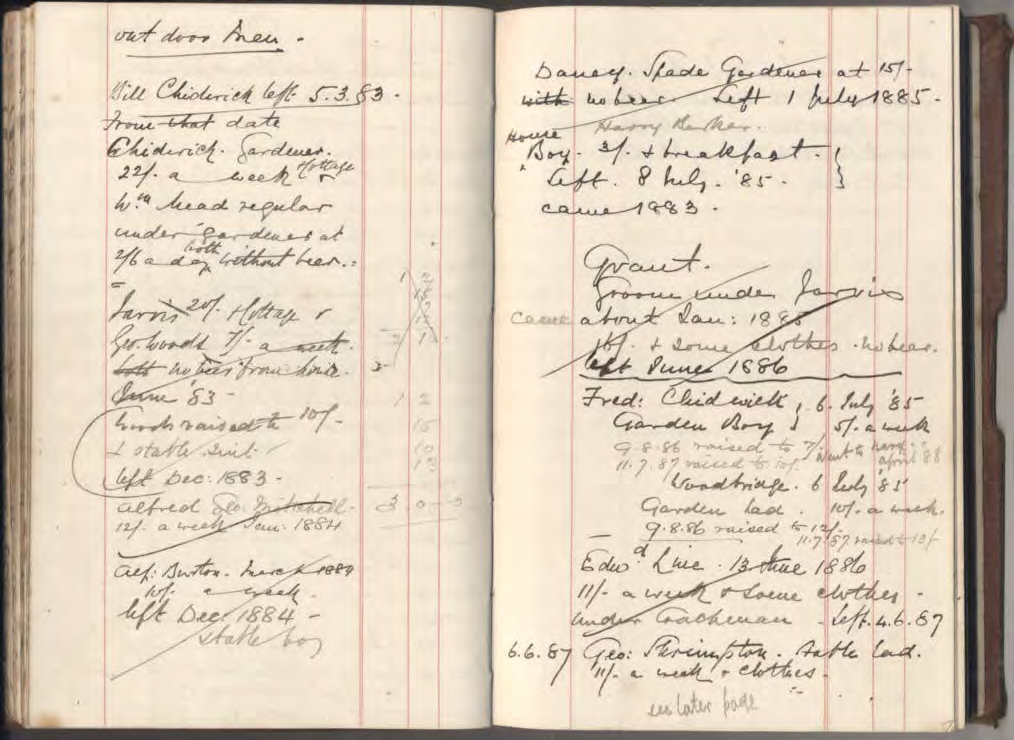 out door Men -
Will Chiderick left 5.3.83 -
From that date
Chiderick. Gardener.
22/- a week & Cottage
Wm. Mead regular
under gardener at
2/6 a day both without beer.:
Jarvis 20/- & Cottage &
Geo. Woods 7/- a week.
both no beer from house.
June '83 -
Woods raised to 10/-
& stable suit
left Dec: 1883 -
Alfred Geo. Mitchell
12/- a week Jan: 1884
Alf: Burton. March 1884
10/- a week.
left Dec. 1884 -
stable boy
1 2
2 1
3
1 2
15
10
3 0
Dancy. Spade Gardener at 15/-
with no beer. Left 1 July 1885 -
House Harry Barker.
Boy. 3/- & breakfast.
Left. 8 July. '85 -
came 1883 -
Grant.
Groom under Jarvis
came about Jan: 1885
16/- & some clothes - no beer.
left June 1886
Fred: Chidwick, 6. July '85
Garden Boy 5/- a week
9.8.86 raised to 7/- Went to Navy
11.7.87 raised to 10/- April 88
Woodbridge. 6 July '85
Garden Lad. 10/- a week.
9.8.86 raised to 12/-
11.7.87 raised to 13/-
Edwd. Line - 13 June 1886
11/- a week & some clothes -
under Coachman - Left. 4.6.87
6.6.87 Geo: Shrimpton. Stable lad.
11/- a week & clothes -
see later page